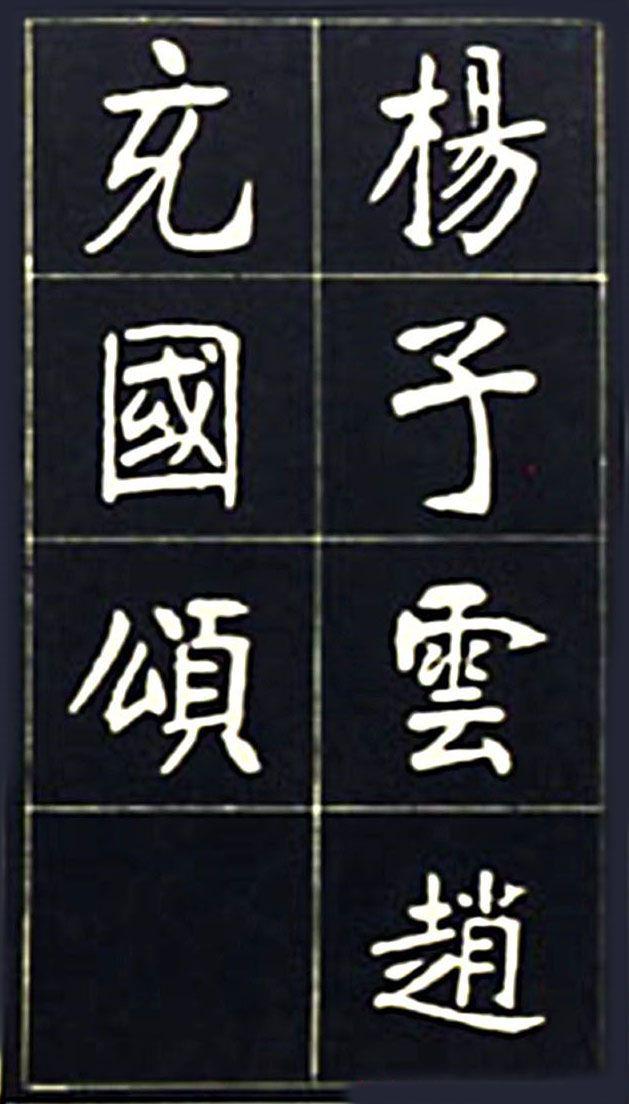 楊子雲趙
充國頌